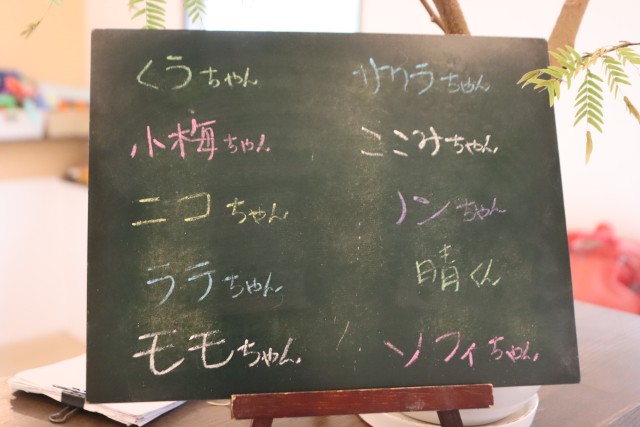 くうちゃん
小梅ちゃん
ニコちゃん
ラテちゃん
モモちゃん
サクラちゃん
ここみちゃん
ノンちゃん
晴くん
ソフィちゃん